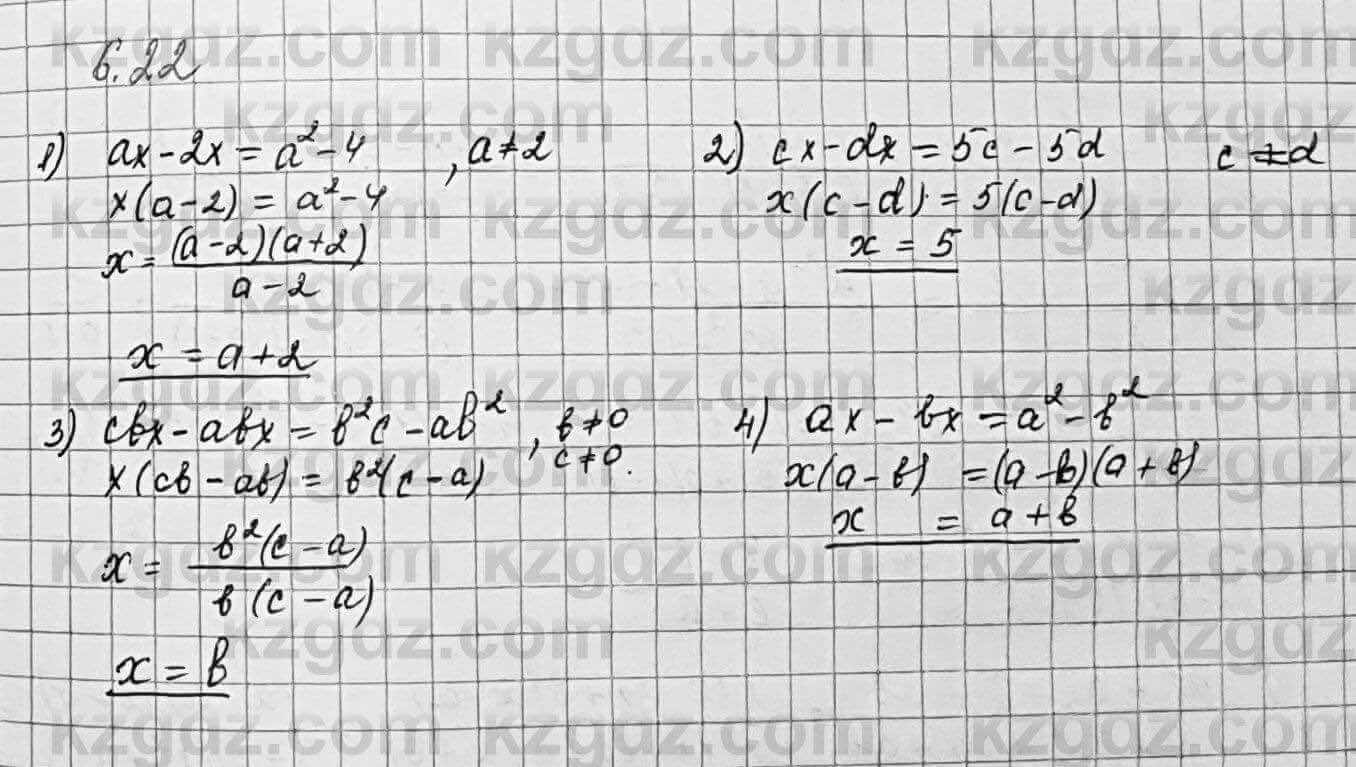 6.22
1) ax - 2x = a² - 4 , a ≠ 2
x(a - 2) = a² - 4
x = (a - 2)(a + 2) / a - 2
x = a + 2
2) cx - dx = 5c - 5d c ≠ d
x(c - d) = 5(c - d)
x = 5
3) cbx - abx = b²c - ab² , b ≠ 0
c ≠ 0.
x(cb - ab) = b²(c - a)
x = b²(c - a) / b(c - a)
x = b
4) ax - bx = a² - b²
x(a - b) = (a - b)(a + b)
x = a + b
kzgdz.com kzgdz.com kzgdz.com
kzgdz.com kzgdz
kzgdz.com kzgdz.com kzgdz.com
kzgdz.com kzgdz
kzgdz.com kzgdz.com kzgdz.com
kzgdz.com kzgdz.com kzgdz.com
kzgdz.com kzgdz
kzgdz.com kzgdz.com kzgdz.com